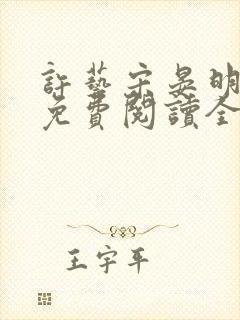 許藝宋晏明
免費閱讀全
王宇平